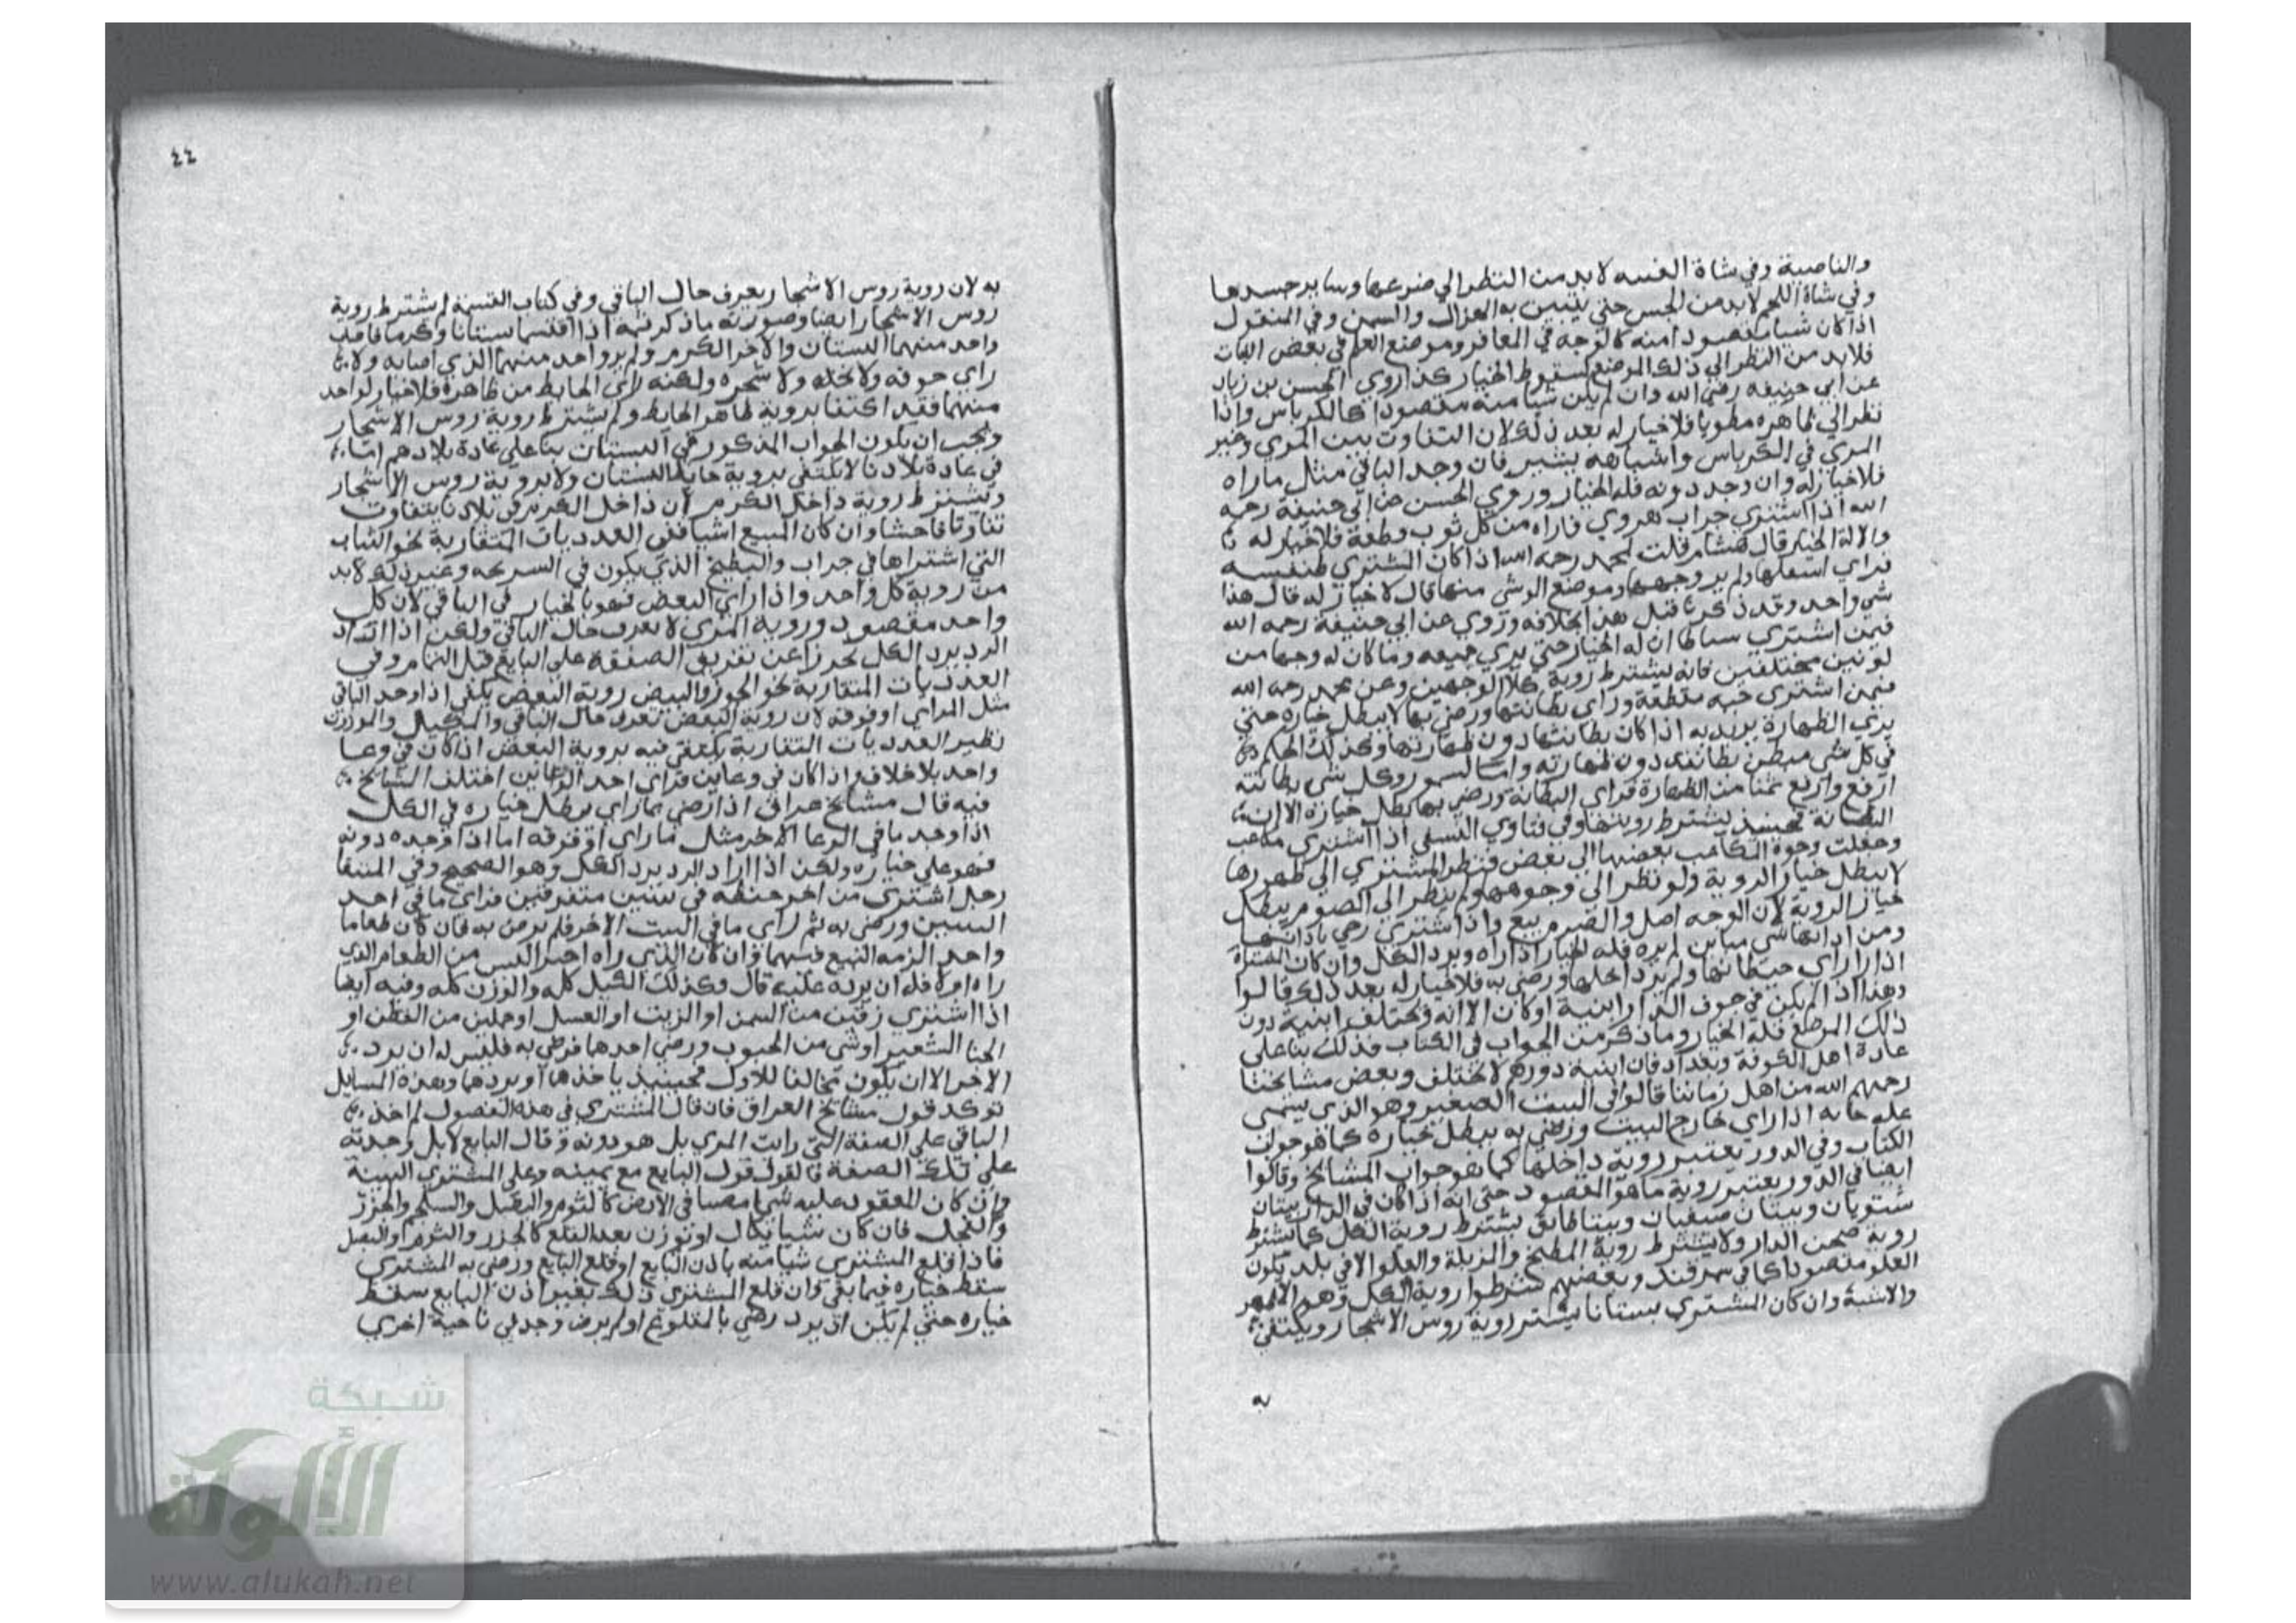 والناصية وفي شاة القنيه لابد من النظر الي ضرعها وساير جسدها
وفي شاة اللحم لابد من الجس حتي يتبين به الهزال والسمن وفي المنقول
اذا كان شيا مقصودا منه كالوجه في المعافر وموضع العلم في بعض الثياب
فلابد من النظر الي ذلك الموضع لسقوط الخيار كذا روي الحسن بن زياد
عن ابي حنيفه رضي الله وان لم يكن شيا منه مقصودا كالكرباس واذا
نظر الي ظاهره مطويا فلا خيار له بعد ذلك لان التفاوت بين المري وغير
المري في الكرباس واشباهه يسير فان وجد الباقي مثل ما راه
فلا خيار له وان وجد دونه فله الخيار وروي الحسن عن ابي حنيفة رحمه
الله اذا اشتري جراب هروي فراه من كل ثوب قطعة فلا خيار له
والا له الخيار قال هشام قلت لمحمد رحمه الله اذا كان المشتري طنفسه
فراي اسفلها ولم ير وجهها وموضع الوشي منها قال لا خيار له قال هذا
شي واحد وقد ذكرنا قبل هذا بخلافه وروي عن ابي حنيفة رحمه الله
فيمن اشتري بساطا ان له الخيار حتي يري جميعه وما كان له وجها من
لونين مختلفين فانه يشترط روية كلا الوجهين وعن محمد رحمه الله
فيمن اشتري جبه مقطعة وراي بطانتها ورضي بها لا يبطل خياره حتي
يري الظهارة يريد به اذا كان بطانتها دون ظهارتها وكذلك الحكم
في كل شي مبطن بطانته دون ظهارته واما السمور وكل شي بطانته
ارفع واربع ثمنا من الظهارة فراي البطانة ورضي بها يبطل خياره الا ان
البطانة فحينيذ يشترط رويتها وفي فتاوي النسفي اذا اشتري مكاعب
وجعلت وجوه المكاعب بعضها الي بعض فنظر المشتري الي ظهورها
لا يبطل خيار الروية ولو نظر الي وجوهها ولم ينظر الي الصرم يبطل
خيار الروية لان الوجه اصل والصرم تبع واذا اشتري رحي باداتها
ومن اداتها شي مباين لم يره فله الخيار اذا راه ويرد الكل وان كان المشتراة
دارا راي حيطانها ولم ير داخلها ورضي به فلا خيار له بعد ذلك قالوا
وهذا اذا لم يكن في جوف الدار ابنية او كان الا انه تختلف ابنية دون
ذلك الموضع فله الخيار وما ذكر من الجواب في الكتاب فذلك بنا علي
عادة اهل الكوفة وبغداد فان ابنية دورهم لا تختلف وبعض مشايخنا
رحمهم الله من اهل زماننا قالوا في البيت الصغير وهو الذي يسمي
عله خانه اذا راي خارج البيت ورضي به يبطل خياره كما هو جواب
الكتاب وفي الدور يعتبر روية داخلها كما هو جواب المشايخ وقالوا
ايضا في الدور يعتبر روية ما هو المقصود حتي انه اذا كان في الدار بيتان
شتويان وبيتان صيفيان وبيتا طابق يشترط روية الكل كما يشترط
روية صحن الدار ولا يشترط روية المطبخ والمزبلة والعلو الا في بلد يكون
العلو مقصودا كما في سمرقند وبعضهم شرطوا روية الكل وهو الاظهر
والاشبة وان كان المشتري بستانا يشتر روية روس الاشجار ويكتفي
به
٤٤
به لان روية روس الاشجار يعرف حال الباقي وفي كتاب القسمة لم يشترط روية
روس الاشجار ايضا وصورته ما ذكر ثمه اذا اقتسما بستانا وكرما فاصاب
واحد منهما البستان والاخر الكرم ولم ير واحد منهما الذي اصابه ولا
راي جوفه ولا نخله ولا شجره ولكنه راي الحايط من ظاهره فلا خيار لواحد
منهما فقد اكتفا بروية ظاهر الحايط ولم يشترط روية روس الاشجار
ويجب ان يكون الجواب المذكور في البستان بنا علي عادة بلادهم اما
في عادة بلادنا لا يكتفي بروية حايط البستان ولا بروية روس الاشجار
ويشترط روية داخل الكرم لان داخل الكرم في بلادنا يتفاوت
تفاوتا فاحشا وان كان المبيع اشيا ففي العدديات المتقاربة نحو الثياب
التي اشتراها في جراب والبطيخ الذي يكون في السريحه وغير ذلك لابد
من روية كل واحد واذا راي البعض فهو بالخيار في الباقي لان كل
واحد مقصود وروية المري لا تعرف حال الباقي ولكن اذا اراد
الرد يرد الكل تحرزا عن تفريق الصفقة علي البايع قبل التمام وفي
العدديات المتقاربة نحو الجوز والبيض روية البعض يكفي اذا وجد الباقي
مثل المراي او فوقه لان روية البعض تعرف حال الباقي والمكيل والموزون
نظير العدديات المتقاربة يكتفي فيه بروية البعض اذا كان في وعا
واحد بلا خلاف واذا كان في وعاين فراي احد الوعاين اختلف المشايخ
فيه قال مشايخ عراق اذا رضي بما راي يبطل خياره في الكل
اذا وجد ما في الوعا الاخر مثل ما راي او فوقه اما اذا وجده دونه
فهو علي خياره ولكن اذا اراد الرد يرد الكل وهو الصحيح وفي المنتقا
رجل اشتري من اخر حنطه في بيتين متفرقين فراي ما في احد
البيتين ورضي به ثم راي ما في البيت الاخر فلم يرض به فان كان طعاما
واحد الزمه البيع فيهما وان كان الذي راه اخيرا ليس من الطعام الذي
راه اولا فله ان يرده عليه قال وكذلك الكيل كله والوزن كله وفيه ايضا
اذا اشتري زقين من السمن او الزيت او العسل او حملين من القطن او
الحنا الشعير او شي من الحبوب ورضي احدها فرضي به فليس له ان يرد
الاخر الا ان يكون مخالفا للاول فحينيذ ياخذها او يردها وهذه المسايل
توكد قول مشايخ العراق فان قال المشتري في هذه الفصول لم اخذ
الباقي علي الصفة التي رايت المري بل هو دونه وقال البايع لا بل وجدته
علي تلك الصفة فالقول قول البايع مع يمينه وعلي المشتري البينة
وان كان المعقود عليه شيا مغيبا في الارض كالثوم والبصل والسلجم والجزر
والفجل فان كان شيا يكال او يوزن بعد القلع كالجزر والثوم او البصل
فاذا قلع المشتري شيا منه باذن البايع او قلع البايع ورضي به المشتري
سقط خياره فيما بقي وان قلع المشتري ذلك بغير اذن البايع سقط
خياره حتي لم يكن ان يرد رضي بالمقلوع او لم يرض وجد في ناحية اخري
شبكة
الألوكة
www.alukah.net